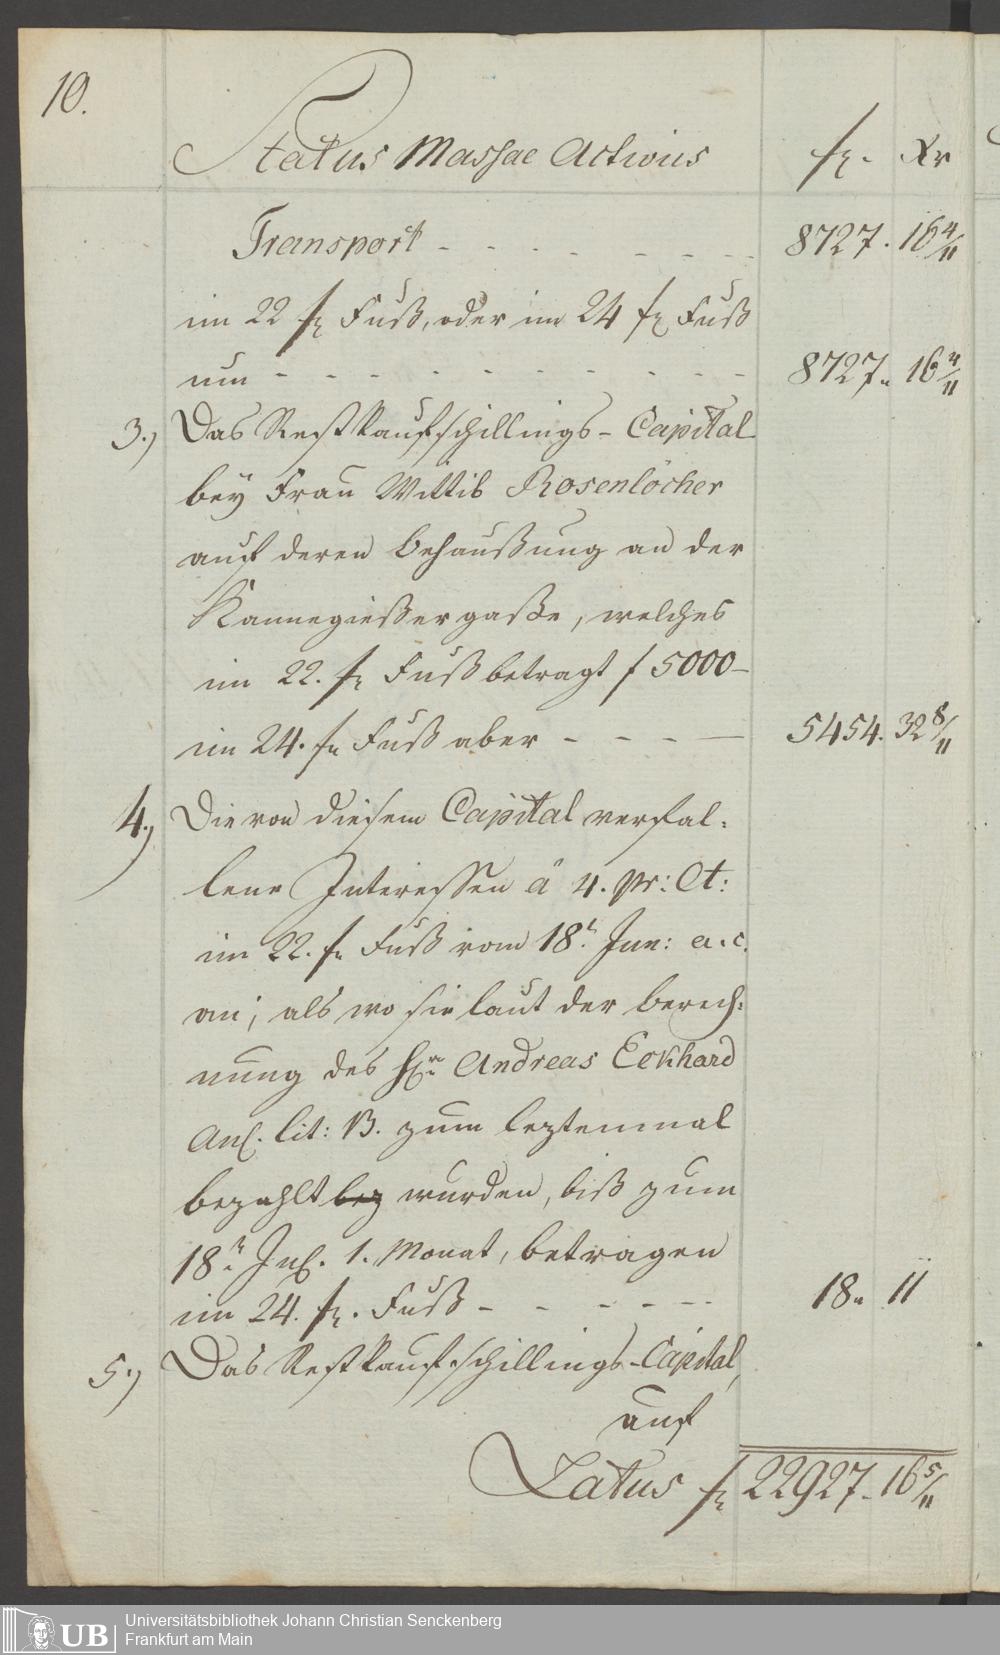 10.
Status Massae Activus fl. Xr
Transport - - - - - - - 8727. 16 4/11
im 22 fl Fuß, oder im 24 fl Fuß
um - - - - - - - - - - 8727. 16 4/11
3.) Das Restkaufschillings-Capital
bey Frau Wittib Rosenlöcher
auf deren Behaußung an der
Kannegießergaße, welches
im 22. fl Fuß betragt f 5000 -
im 24. fl Fuß aber - - - - 5454. 32 8/11
4.) Die von diesem Capital verfal-
lene Interessen â 4. pr: Ct:
im 22. fl Fuß vom 18n Jun: a. c.
an; als wo sie laut der Berech-
nung des Hrn Andreas Eckhard
Anl. lit: B. zum leztenmal
bezahlt bez wurden, biß zum
18n Jul. 1. Monat, betragen
im 24. fl. Fuß - - - - - 18. 11
5.) Das Restkaufschillings-Capital,
auf
Latus fl 22927. 16 5/11
UB Universitätsbibliothek Johann Christian Senckenberg
Frankfurt am Main